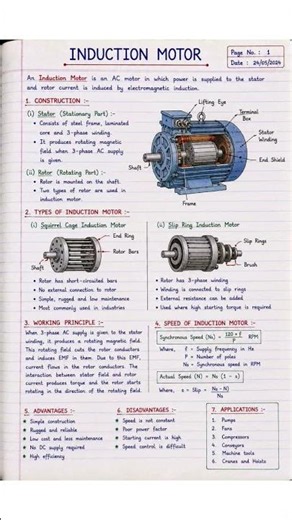 INDUCTION MOTOR
Page No. : 1
Date : 24/05/2024
An Induction Motor is an AC motor in which power is supplied to the stator
and rotor current is induced by electromagnetic induction.
1. CONSTRUCTION :-
(i) Stator (Stationary Part) :-
• Consists of steel frame, laminated
core and 3-phase winding.
• It produces rotating magnetic
field when 3-phase AC supply
is given.
(ii) Rotor (Rotating Part) :-
• Rotor is mounted on the shaft.
• Two types of rotor are used in
induction motor.
Lifting Eye
Terminal
Box
Stator
Winding
End Shield
Shaft
Frame
2. TYPES OF INDUCTION MOTOR :-
(i) Squirrel Cage Induction Motor
End Ring
Rotor Bars
Shaft
• Rotor has short-circuited bars
• No external connection to rotor
• Simple, rugged and low maintenance
• Most commonly used in industries
(ii) Slip Ring Induction Motor
Slip Rings
Brush
• Rotor has 3-phase winding
• Winding is connected to slip rings
• External resistance can be added
• Used where high starting torque is required
3. WORKING PRINCIPLE :-
When 3-phase AC supply is given to the stator
winding, it produces a rotating magnetic field.
This rotating field cuts the rotor conductors
and induces EMF in them. Due to this EMF,
current flows in the rotor conductors. The
interaction between stator field and rotor
current produces torque and the rotor starts
rotating in the direction of the rotating field.
4. SPEED OF INDUCTION MOTOR :-
Synchronous Speed (Ns) = 120 × f / P RPM
Where, f = Supply frequency in Hz
P = Number of poles
Ns = Synchronous speed in RPM
Actual Speed (N) = Ns (1 - s)
Where, s = Slip = Ns - N / Ns
5. ADVANTAGES :-
• Simple construction
• Rugged and reliable
• Low cost and less maintenance
• No DC supply required
• High efficiency
6. DISADVANTAGES :-
• Speed is not constant
• Poor power factor
• Starting current is high
• Speed control is difficult
7. APPLICATIONS :-
1. Pumps
2. Fans
3. Compressors
4. Conveyors
5. Machine tools
6. Cranes and Hoists